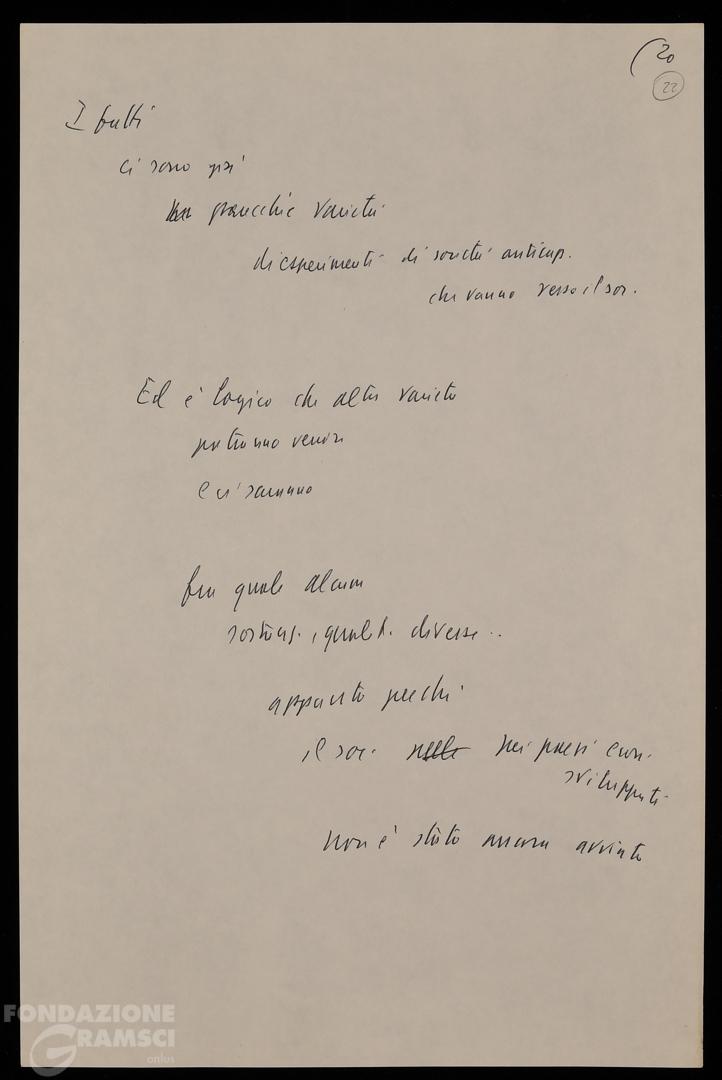 (20
22
ci sono già
parecchie varietà
di esperimenti di società anticap.
che vanno verso il soc.
Ed è logico che altre varietà
potranno venire
e ci saranno
fra quali alcune
sostanz., qualit. diverse..
appunto perché
il soc. nelle nei paesi econ.
sviluppati
non è stato ancora avviato
FONDAZIONE
GRAMSCI
onlus